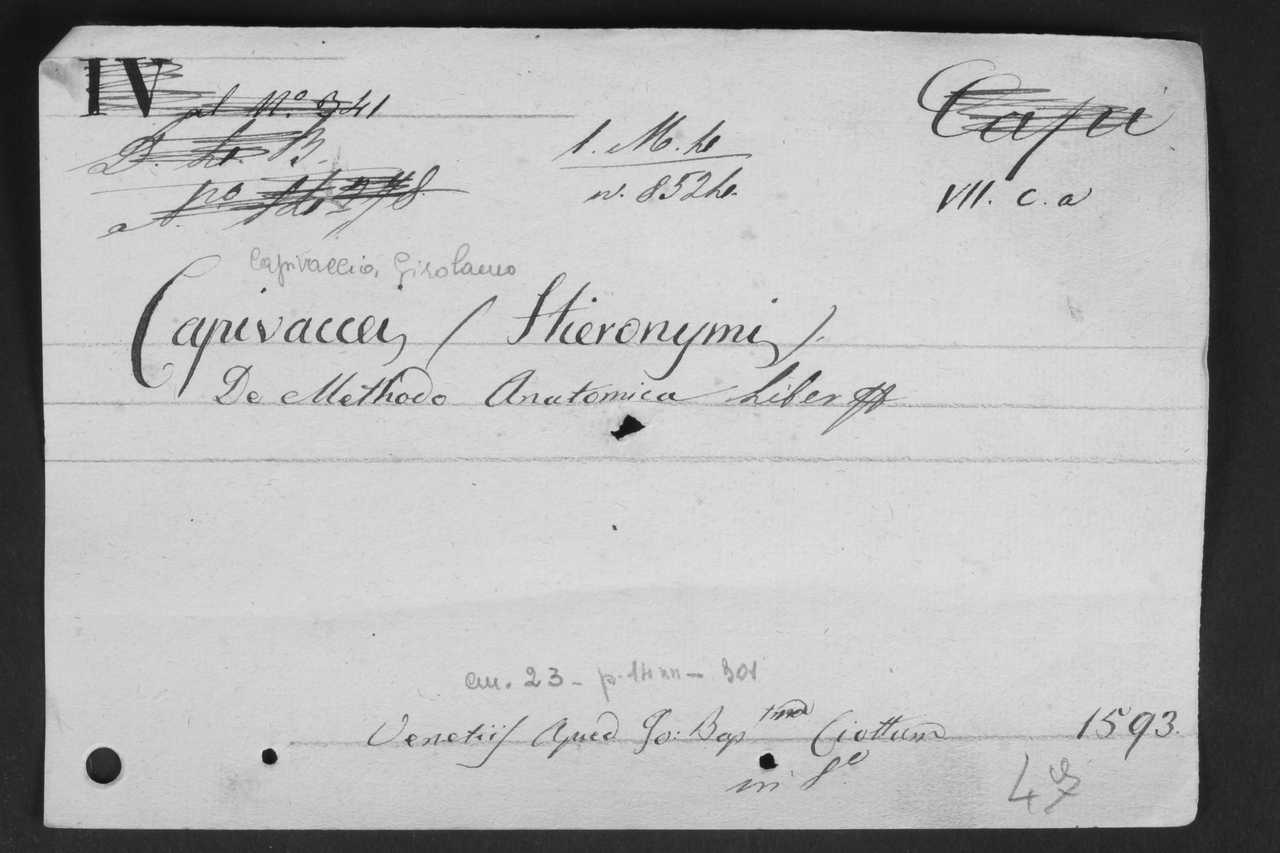 IV
al N.º 341
D. L. B.
Capi
1. M. h
n. 852 h.
VII. c. a
Capivaccio, Girolamo
Capivaccei, (Hieronymi,).
De Methodo Anatomica Liber
cm. 23 - p. 14 nn - 301
Venetiis Apud Jo: Bap tmã Ciottum 1593.
in 8º
47